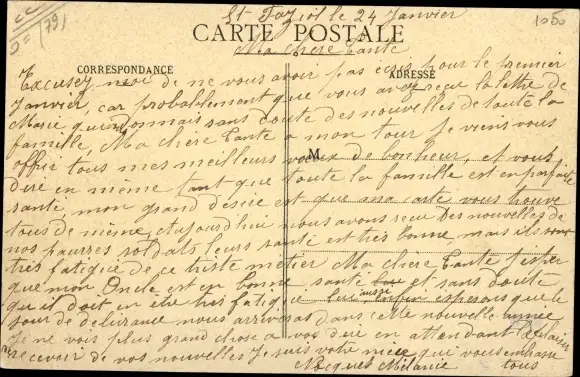 1050
(79)
St Faziol le 24 Janvier
CARTE POSTALE
Ma chère Tante
CORRESPONDANCE
ADRESSE
Excusez moi de ne vous avoir pas écris pour le premier
Janvier, car probablement que vous avez reçu la lettre de
Marie qui donnais sans doute des nouvelles de toute la
famille, Ma chère Tante a mon tour je viens vous
offrir tous mes meilleurs voeux de bonheur, et vous
M
dire en même tant que toute la famille est en parfaite
santé mon grand désire est que ma carte vous trouve
tous de même, Aujourd'hui nous avons reçu des nouvelles de
nos pauvres soldats leurs santé est très bonne, mais ils sont
très fatigue de ce triste métier Ma chère Tante j'espère
que mon Oncle est en bonne santé et sans doute
qu'il doit en être très fatigue lui aussi enfin esperons que le
jour de délivrance nous arrivera dans cette nouvelle année
Je ne vois plus grand chose a vos dire en attendant le plaisir
recevoir de vos nouvelles Je suis votre niece qui vous embrasse
Nocques Mélanie tous